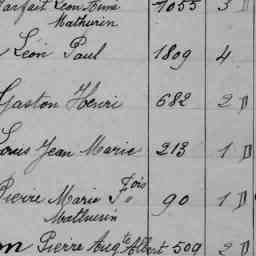 Parfait Léon Aimé 1055 3 D
Mathurin
Léon Paul 1809 4
Gaston Henri 682 2 D
Louis Jean Marie 213 1 D
Pierre Marie Fois 90 1 D
Mathurin
Pierre Augte Albert 509 2 D